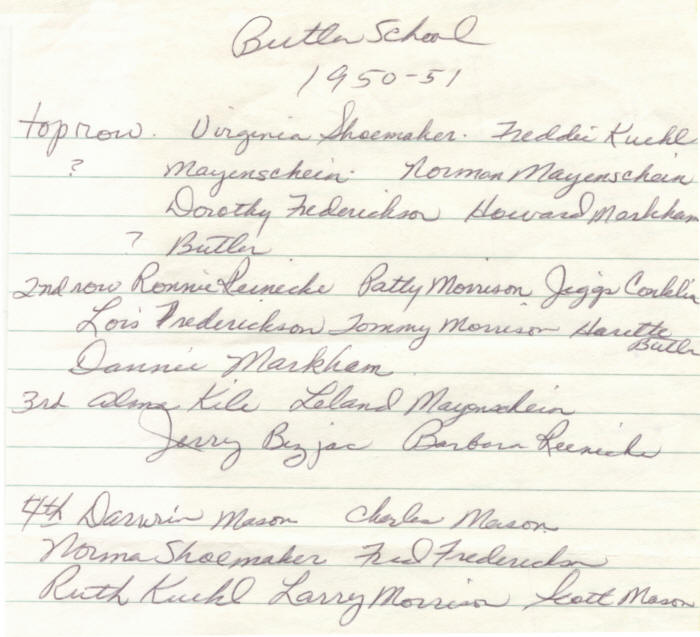 Butler School
1950-51
top row. Virginia Shoemaker. Freddie Kuehl
? Mayenschein. Norman Mayenschein
Dorothy Frederickson Howard Markham
? Butler
2nd row Ronnie Reinecke Patty Morrison Jiggs Conklin
Lois Frederickson Tommy Morrison Harette Butler
Dannie Markham
3rd Alma Kile Leland Mayenschein
Jerry Bizjac Barbara Reinicke
4th Darwin Mason Charles Mason
Norma Shoemaker Fred Frederickson
Ruth Kuehl Larry Morrison Scott Mason